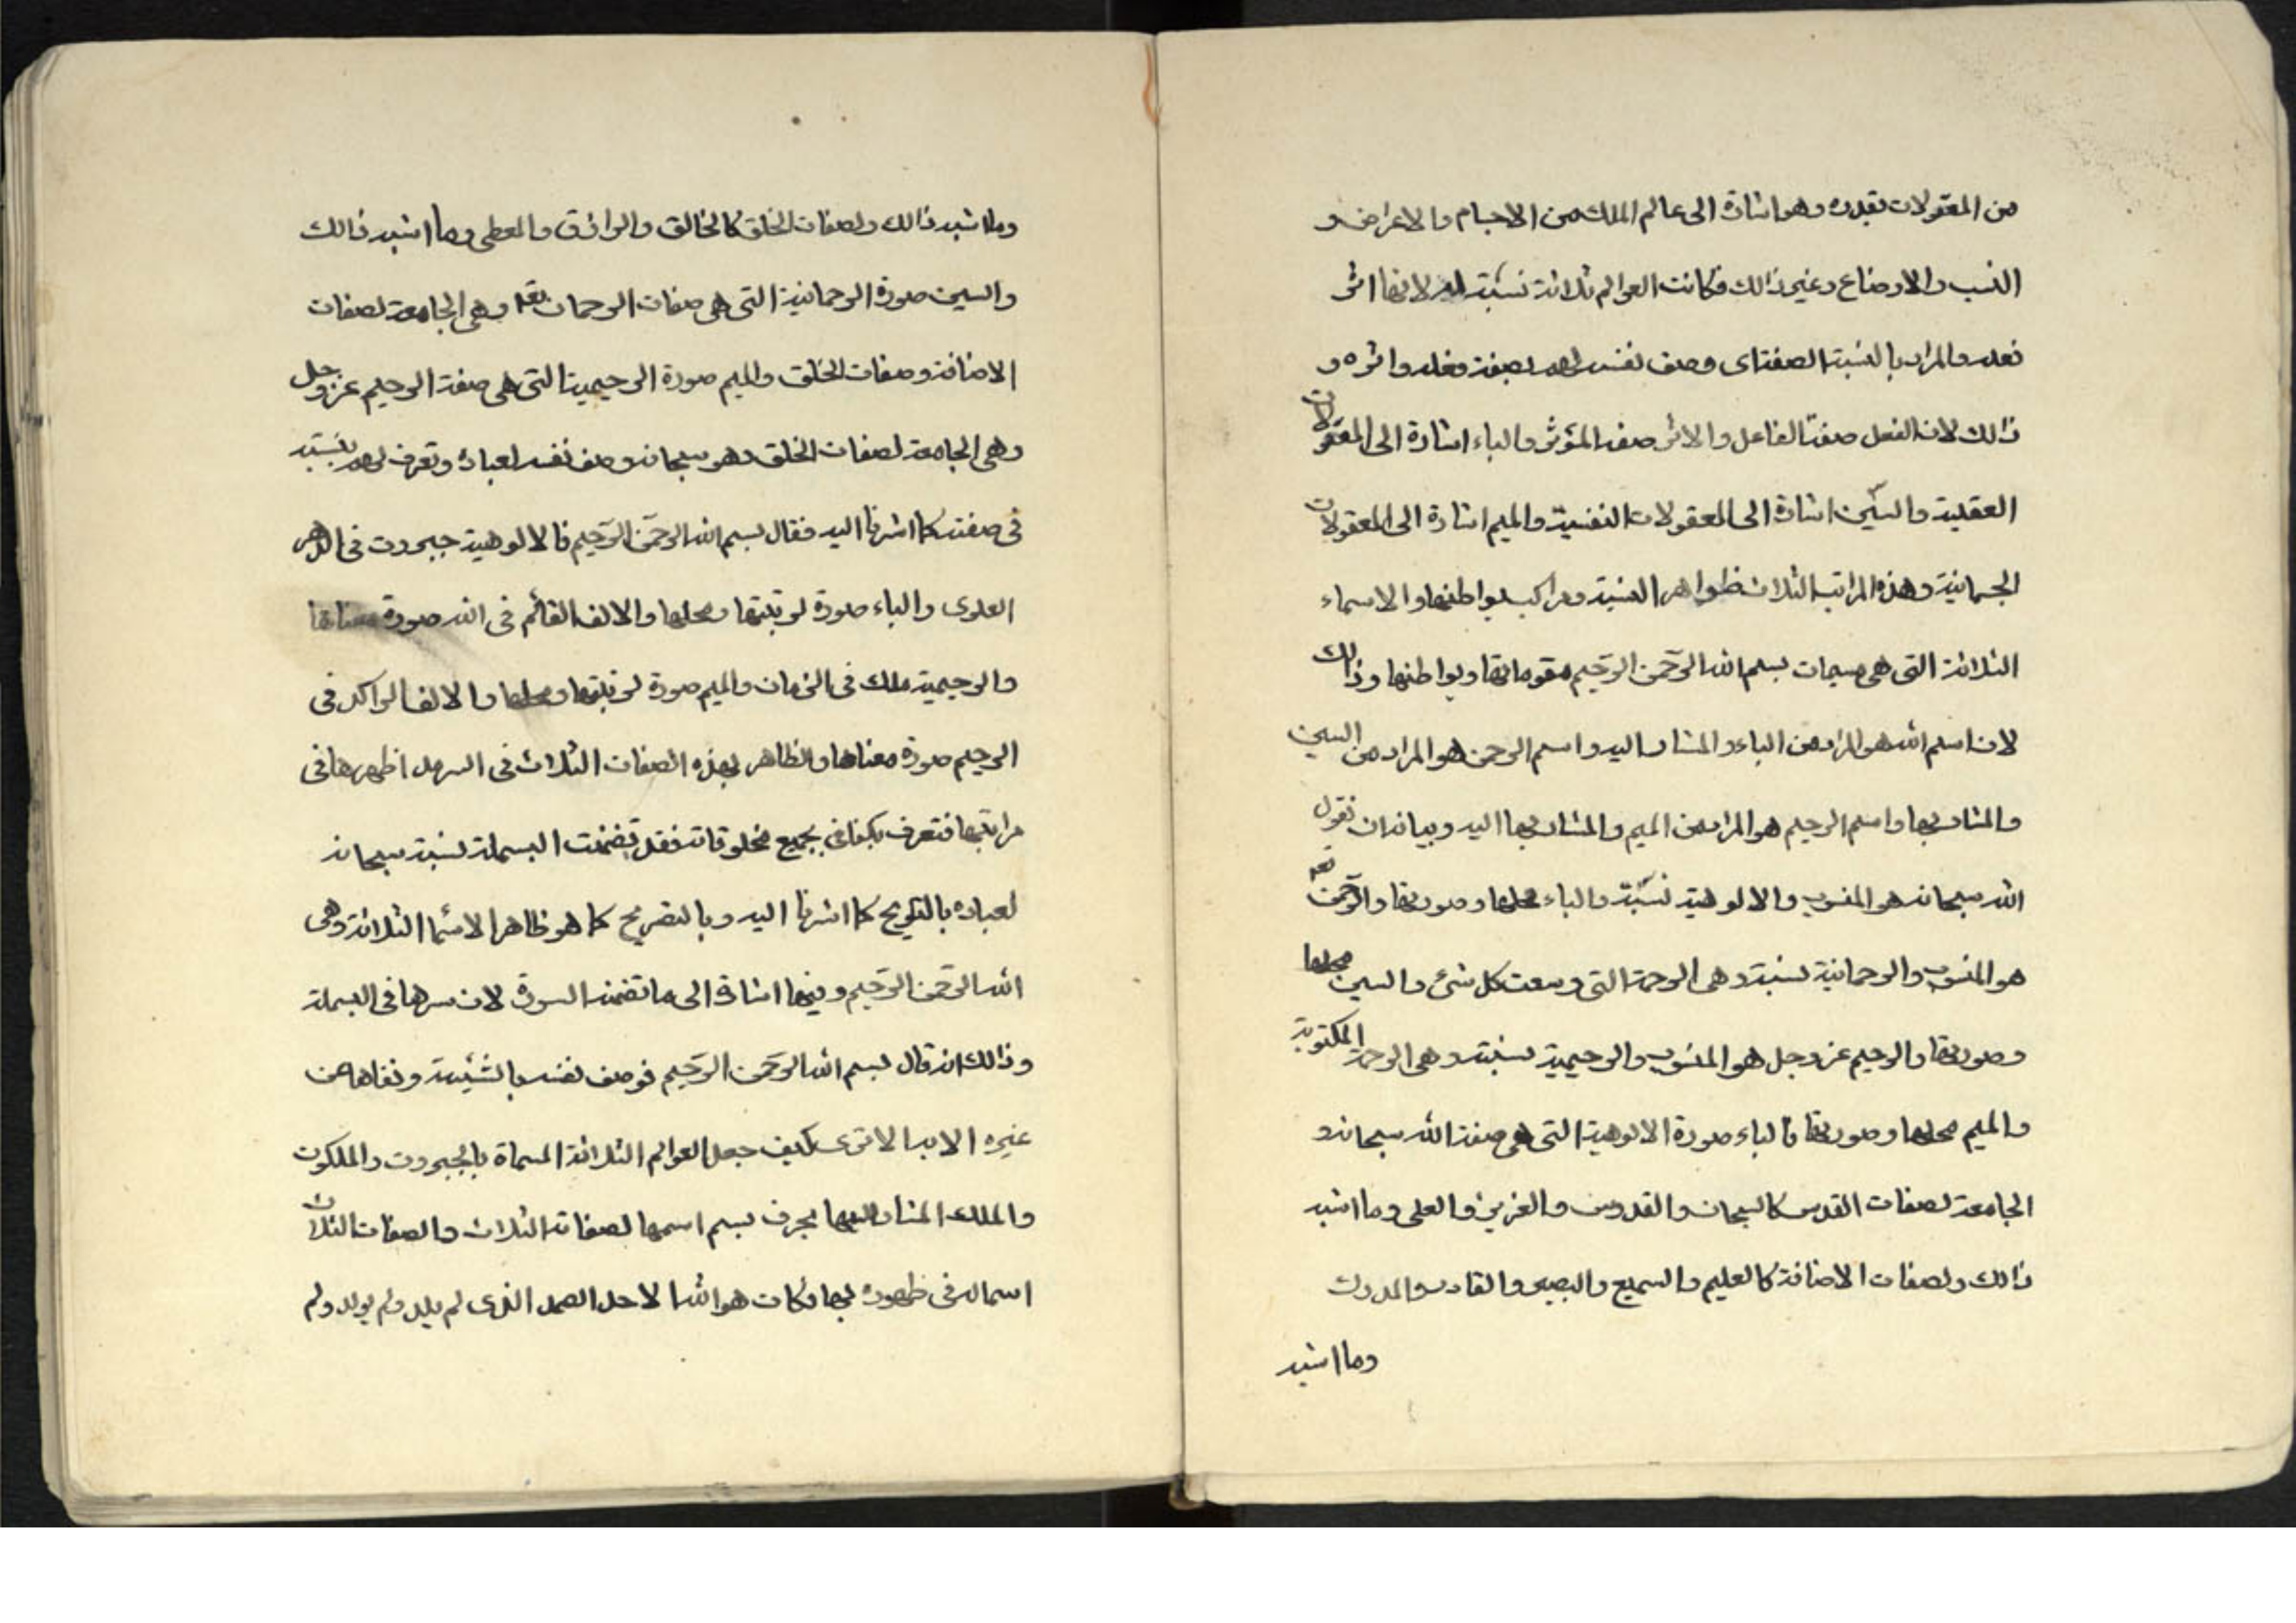 من المقولات بقدره وهو اشارة الى عالم الملك من الاجسام والاعراض و
النسب والاوضاع وغير ذالك فكانت العوالم ثلاثة نسبته لانها اثر
فعله والمراد بالنسبة الصفة اى وصف نفسه لهم بصفة فعله واثره و
ذالك لان الفعل صفة الفاعل والاثر صفة المؤثر والباء اشارة الى المعقولات
العقلية والسّين اشارة الى المعقولات النفسية والميم اشارة الى المعقولات
الجسمانية وهذه المراتب الثلاث ظواهر النسبة ومراكب بواطنها والاسماء
الثلاثة التى هى مسميات بسم الله الرّحمن الرّحيم مقوماتها وبواطنها وذالك
لان اسم الله هو المراد من الباء والمشار اليه واسم الرحمن هو المراد من السين
والمشار بها واسم الرحيم هو المراد من الميم والمشار بها اليه وبيانه ان نقول
الله سبحانه هو المنسوب والالوهية نسبّته والباء محلها وصورتها والرّحمن تعه
هو المنسوب والرحمانية نسبته وهى الرحمة التى وسعت كل شئ والسين محلها
وصورتها والرحيم عز وجل هو المنسوب والرحيمية نسبته وهى الرحمة المكتوبة
والميم محلها وصورتها فالباء صورة الالوهية التى هى صفة الله سبحانه و
الجامعة لصفات القدس كالسبحان والقدوس والعزيز والعلى وما اشبه
ذالك ولصفات الاضافة كالعليم والسميع والبصير والقادر والمدرك
وما اشبه
وما اشبه ذالك ولصفات الخلق كالخالق والرازق والمعطى وما اشبه ذالك
والسين صورة الرحمانية التى هى صفات الرحمان تعه وهى الجامعة لصفات
الاضافة وصفات الخلق والميم صورة الرحيمية التى هى صفة الرحيم عز وجل
وهى الجامعة لصفات الخلق وهو سبحانه وصف نفسه لعباده وتعرف لهم بنسبته
فى صفته كما اشرنا اليه فقال بسم الله الرحمّن الرّحيم فالالوهية جبروت فى الدهر
العلوى والباء صورة لرتبتها ومحلها والالف القائم فى الله صورة معناها
والرحيمية ملك فى الزمان والميم صورة لرتبتها ومحلها والالف الراكد فى
الرحيم صورة معناها والظاهر بهذه الصفات الثلاث فى السرمد اظهرها فى
مراتبها فتعرف بجميع مخلوقاته فقد تضمنت البسملة نسبة سبحانه
لعباده بالتلويح كما اشرنا اليه وبالتصريح كما هو ظاهر الاسما الثلاثة وهى
الله الرّحمن الرّحيم وفيها اشارة الى ما تضمنه السورة لان سرها فى البسملة
وذالك انه قال بسم الله الرّحمن الرّحيم فوصف نفسه بالشيئية ونفاها عن
غيره الا به الا ترى كيف جعل العوالم الثلاثة المسماة بالجبروت والملكوت
والملك المشار اليها بحرف بسم اسمها لصفاته الثلاث والصفات الثلاث
اسما له فى ظهوره بها فكان هو الله الاحد الصمد الذى لم يلد ولم يولد ولم